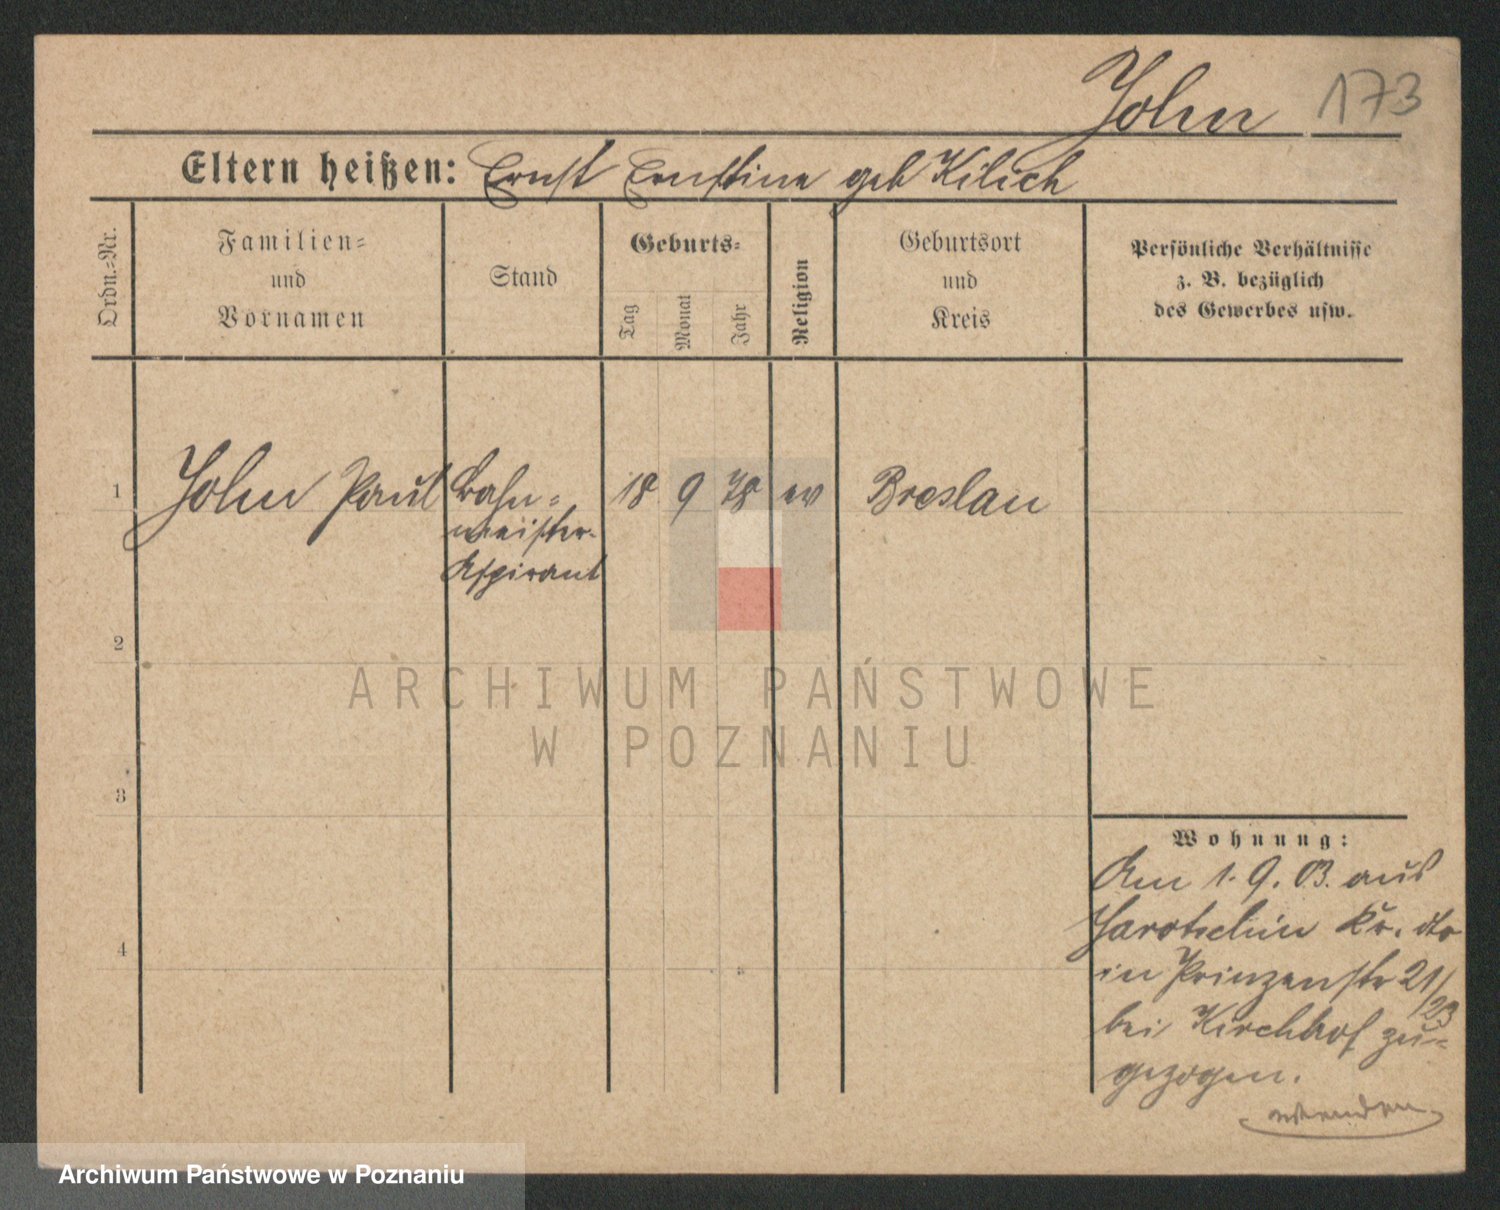 John 173
Eltern heißen: Ernst Ernstine geb Kilich
Ordn.-Nr.
Familien-
und
Vornamen
Stand
Geburts-
Tag
Monat
Jahr
Religion
Geburtsort
und
Kreis
Persönliche Verhältnisse
z. B. bezüglich
des Gewerbes usw.
1 John Paul Bahn- 18 9 78 ev Breslau
meister-
Aspirant
2
ARCHIWUM PAŃSTWOWE
W POZNANIU
3
Wohnung:
Am 1. 9. 03. aus
Jarotschin Kr. dto
4
in Prinzenstr 21/
23
bei Kirchhof zu-
gezogen.
wenden
Archiwum Państwowe w Poznaniu